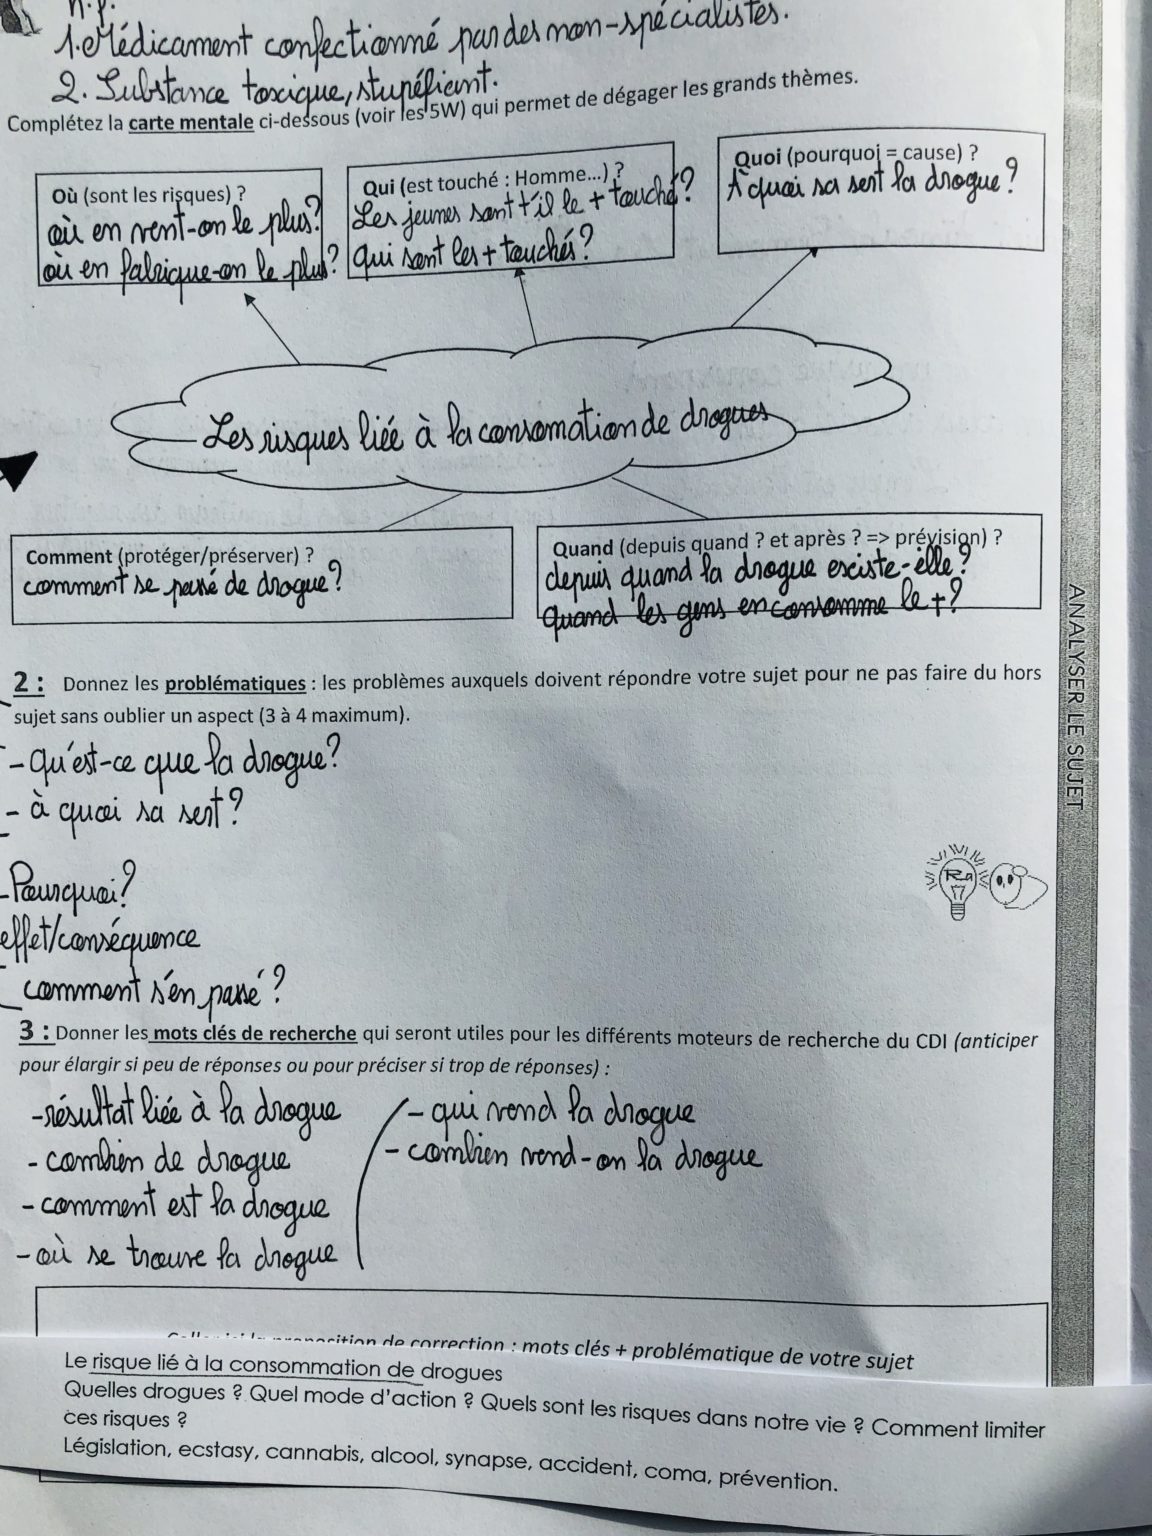 n.f.
1. Médicament confectionné par des non-spécialistes.
2. Substance toxique, stupéfient.
Complétez la carte mentale ci-dessous (voir les 5W) qui permet de dégager les grands thèmes.
Où (sont les risques) ?
où en vent-on le plus?
où en fabrique-on le plus?
Qui (est touché : Homme...) ?
Les jeunes sont t'il le + touché?
qui sont les + touchés?
Quoi (pourquoi = cause) ?
À quoi sa sert la drogue?
Les risques liée à la consomation de drogues
Comment (protéger/préserver) ?
comment se passé de drogue?
Quand (depuis quand ? et après ? => prévision) ?
depuis quand la drogue existe-elle?
quand les gens en consomme le +?
ANALYSER LE SUJET
2 : Donnez les problématiques : les problèmes auxquels doivent répondre votre sujet pour ne pas faire du hors
sujet sans oublier un aspect (3 à 4 maximum).
- Qu'est-ce que la drogue?
- à quoi sa sert?
- Pourquoi?
effet/conséquence
comment s'en passé?
3 : Donner les mots clés de recherche qui seront utiles pour les différents moteurs de recherche du CDI (anticiper
pour élargir si peu de réponses ou pour préciser si trop de réponses) :
- résultat liée à la drogue
- combien de drogue
- comment est la drogue
- où se trouve la drogue
- qui vend la drogue
- combien vend-on la drogue
de correction : mots clés + problématique de votre sujet
Le risque lié à la consommation de drogues
Quelles drogues ? Quel mode d'action ? Quels sont les risques dans notre vie ? Comment limiter
ces risques ?
Législation, ecstasy, cannabis, alcool, synapse, accident, coma, prévention.